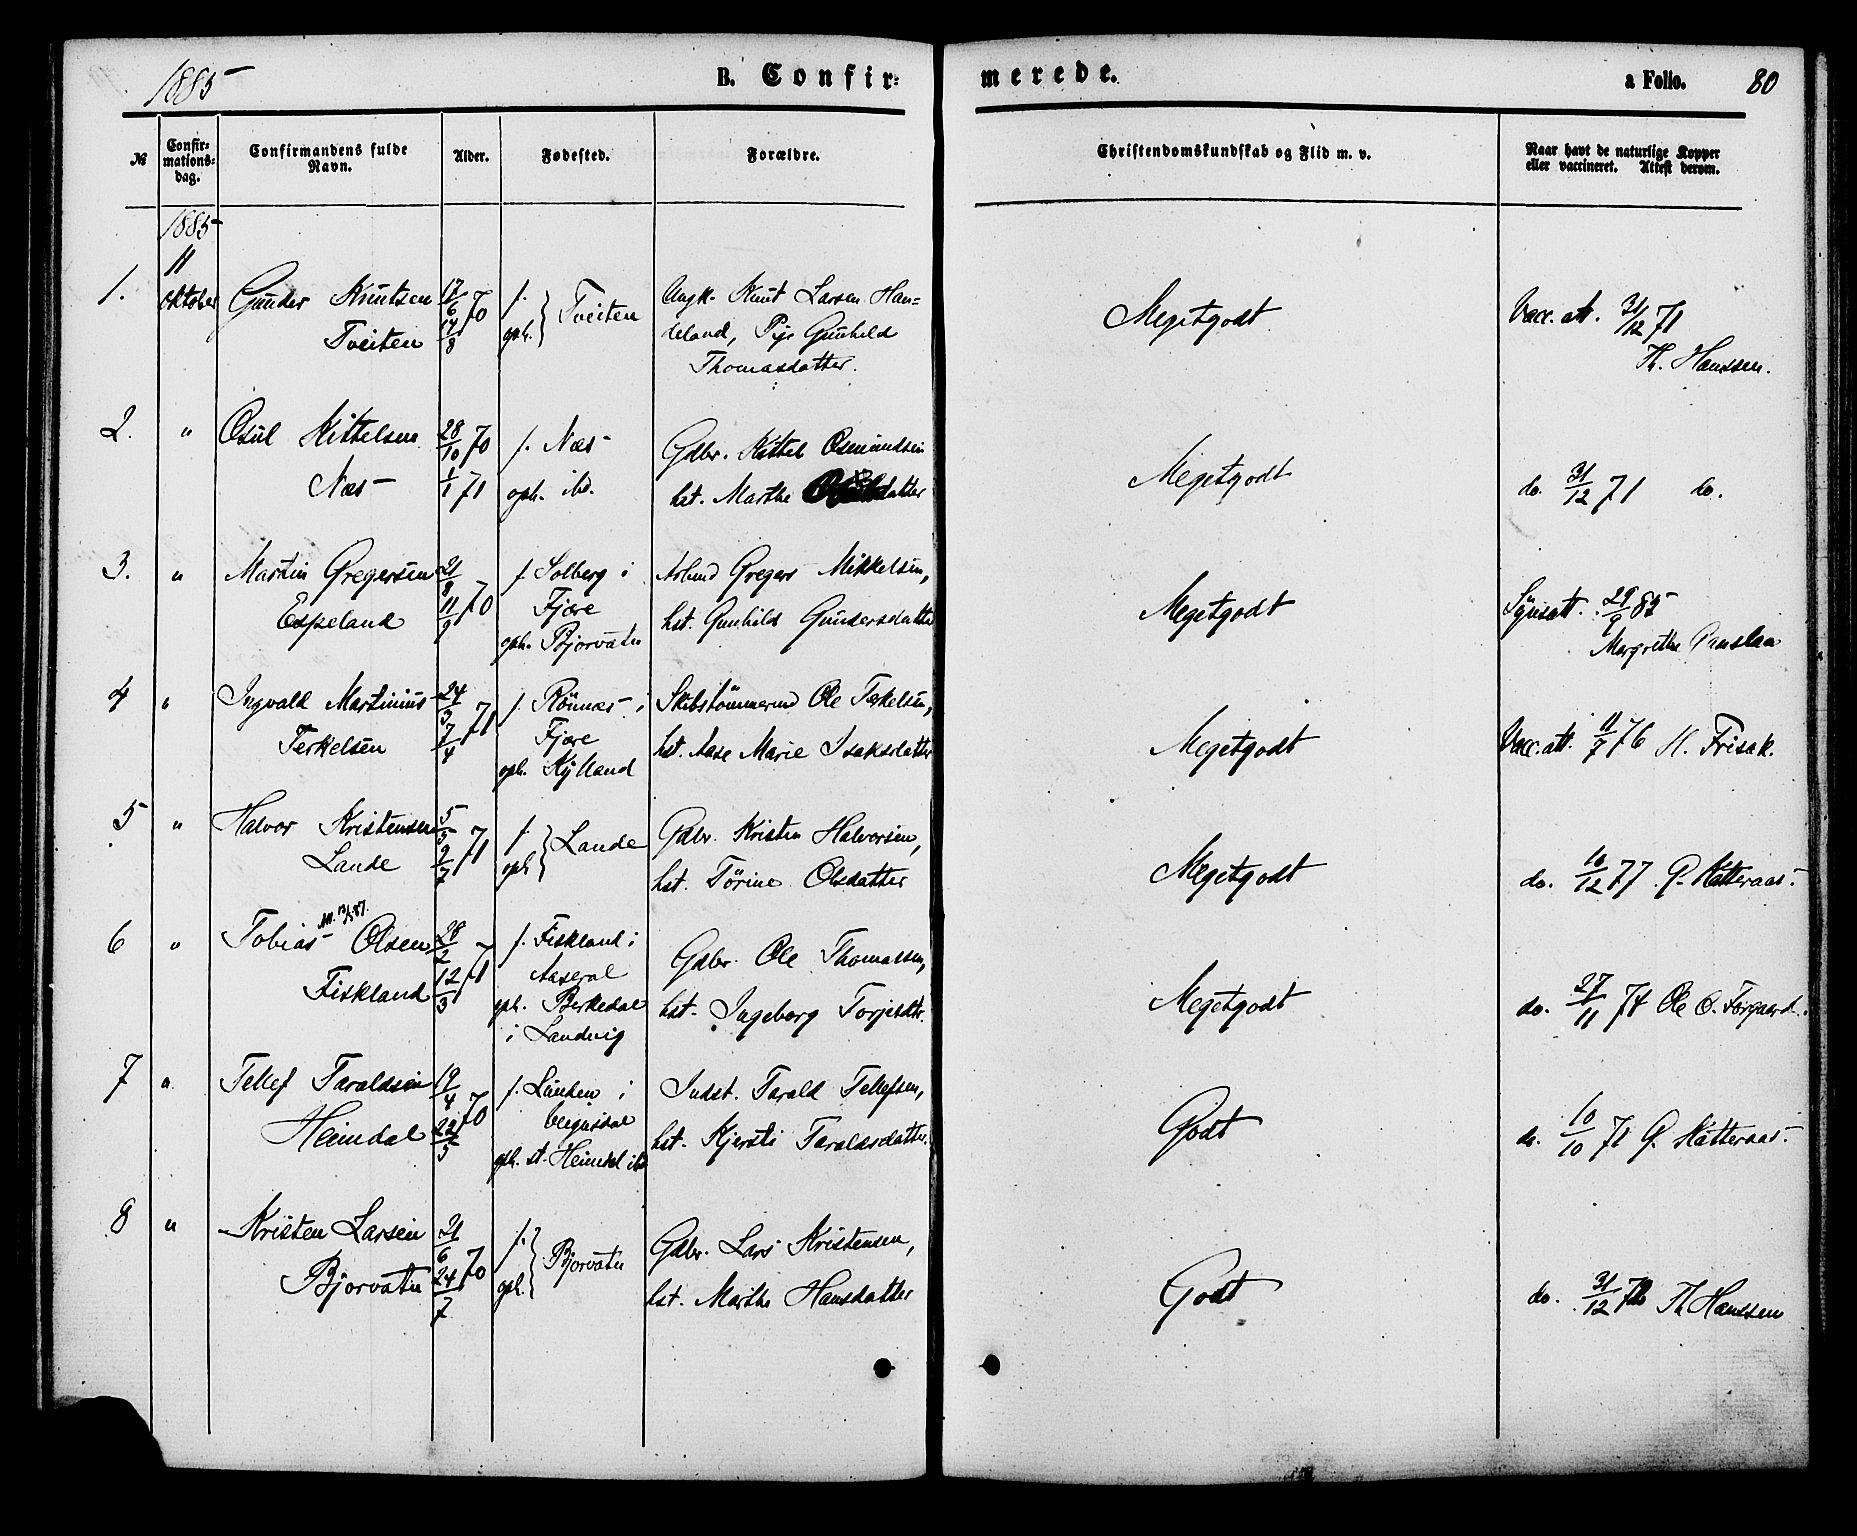 1885
B. Confir=
merede.
a Folio. 80
№
Confir=
mations=
dag.
Confirmandens fulde
Navn.
Alder.
Fødested.
Forældre.
Christendomskundskab og Flid m. v.
Naar havt de naturlige Kopper
eller vaccineret. Attest derom.
1885
11
1. Oktober Gunder Knutsen 17/6 70 f. Tveiten Ungk. Knut Larsen Han= Megetgodt Vacc. att. 31/12 71
Tveiten 14/8 oph. deland, Pige Gunhild
Thomasdatter. Th. Hanssen.
2. " Osul Kittelsen 28/10 70 f. Næs Gdbr. Kittel Osmundsen Megetgodt
Næs 1/1 71 oph. ibd. hst. Marthe datter do. 31/12 71 do.
3. " Martin Gregersen 21/8 70 f. Solberg i Arbmd Gregers Mikkelsen, Megetgodt Synsatt. 29/9 85
Espeland 11/9 Fjære hst. Gunhild Gundersdatter Margrethe
oph. Bjorvatn
4 " Ingvald Martinius 24/3 71 f. Rönnes i Skibstömmermd Ole Terkelsen, Megetgodt Vacc. att. 11/7 76 H. Frisak.
Terkelsen 7/4 Fjære hst. Aase Marie Isaksdatter
oph. Kylland
5 " Halvor Kristensen 5/5 71 f. Lande Gdbr. Kristen Halvorsen, Megetgodt
Lande 9/7 oph hst. Törine Olsdatter do. 10/12 77 G. Katteraas.
6 " Tobias Olsen 28/2 71 f. Fiskland i Gdbr. Ole Thomassen, Megetgodt
Fiskland 12/3 Aaseral hst. Ingeborg Torjesdtr. do. 27/11 74 Ole O.
oph. Berkedal
i Landvig
7 " Tellef Taraldsen 19/4 70 f. Lunden i Indst. Tarald Tellefsen, Godt
Heimdal 22/5 Vegusdal hst. Kjersti Taraldsdatter. do. 10/10 71 G. Katteraas.
oph. st. Heimdal ibd
8 " Kristen Larsen 21/6 70 f. Bjorvatn Gdbr. Lars Kristensen, Godt
Bjorvatn 24/7 oph. hst. Marthe Hansdatter do. 31/12 Th Hanssen